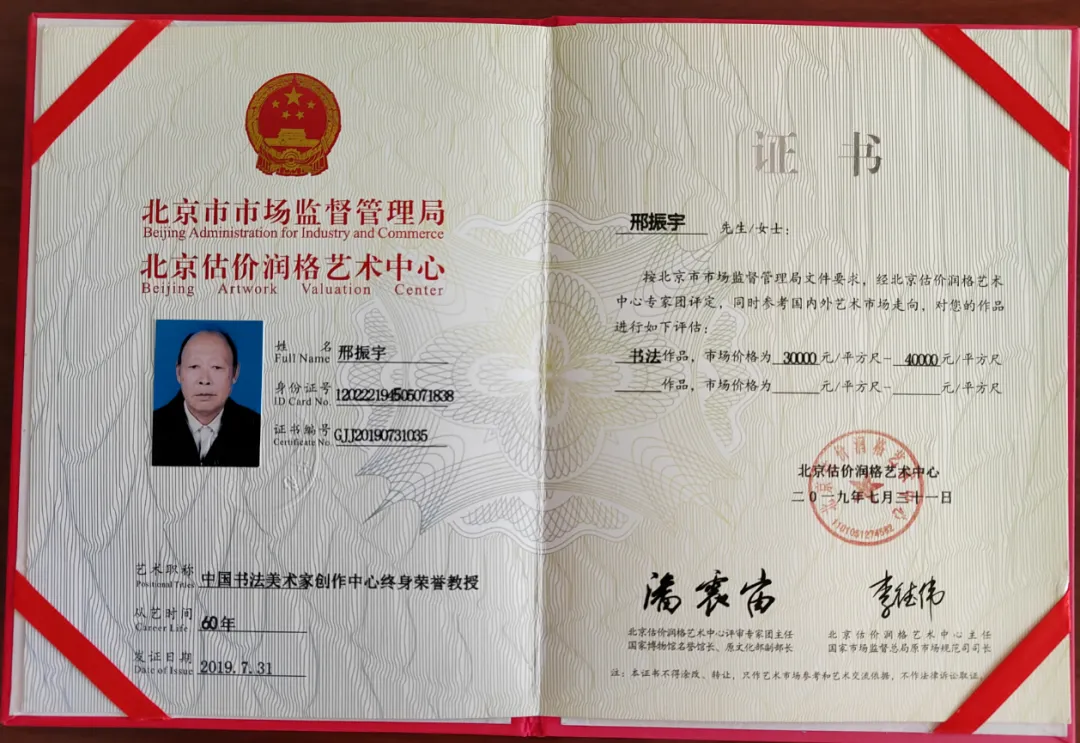 北京市市场监督管理局
Beijing Administration for Industry and Commerce
北京估价润格艺术中心
Beijing Artwork Valuation Center
姓名 邢振宇
Full Name
身份证号 120222194505071838
ID Card No.
证书编号 GJJ20190731035
Certificate No.
艺术职称 中国书法美术家创作中心终身荣誉教授
Positional Titles
从艺时间 60年
Career Life
发证日期 2019.7.31
Date of Issue
证书
邢振宇 先生/女士：
按北京市市场监督管理局文件要求，经北京估价润格艺术
中心专家团评定，同时参考国内外艺术市场走向，对您的作品
进行如下评估：
书法作品，市场价格为 30000 元/平方尺- 40000 元/平方尺
作品，市场价格为 元/平方尺- 元/平方尺
北京估价润格艺术中心
二0一九年七月三十一日
1101051274582
潘震宙
李佳伟
北京估价润格艺术中心评审专家团主任
国家博物馆名誉馆长、原文化部副部长
北京估价润格艺术中心主任
国家市场监督总局原市场规范司司长
注：本证书不得涂改、转让，只作艺术市场参考和艺术交流依据，不作法律诉讼取证。